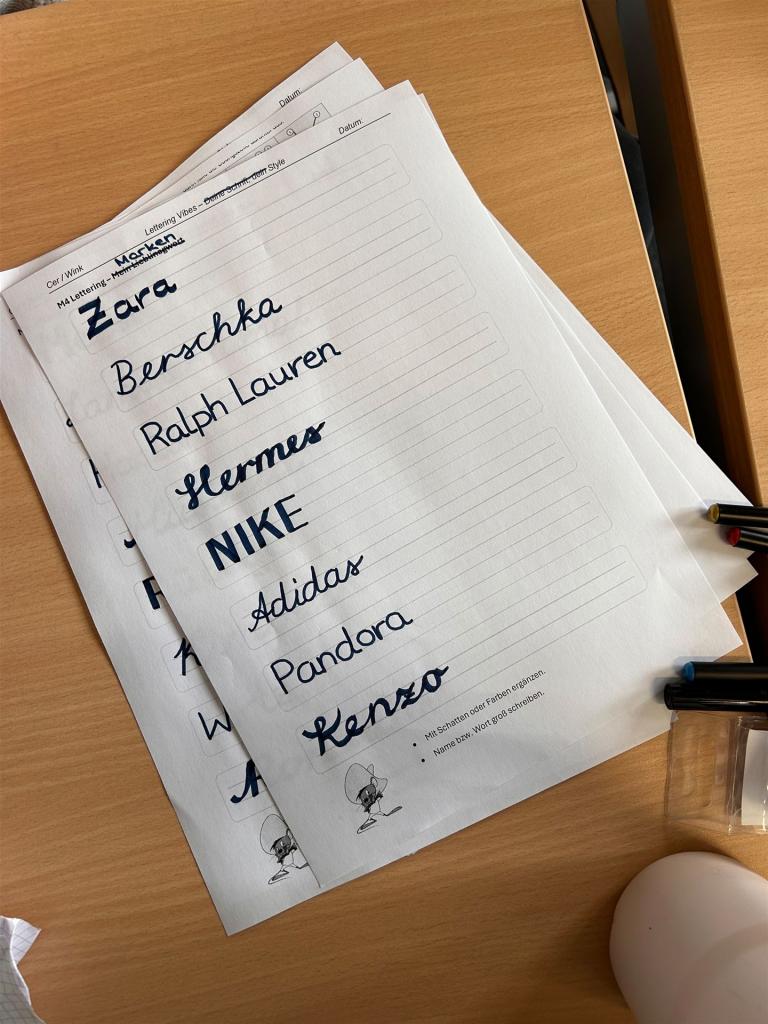 Datum:
Datum:
Cer / Wink
Lettering Vibes – Deine Schrift, dein Style
Marken
M4 Lettering – Mein Lieblingswort
Zara
Berschka
Ralph Lauren
Hermes
NIKE
Adidas
Pandora
Kenzo
• Mit Schatten oder Farben ergänzen.
• Name bzw. Wort groß schreiben.
W